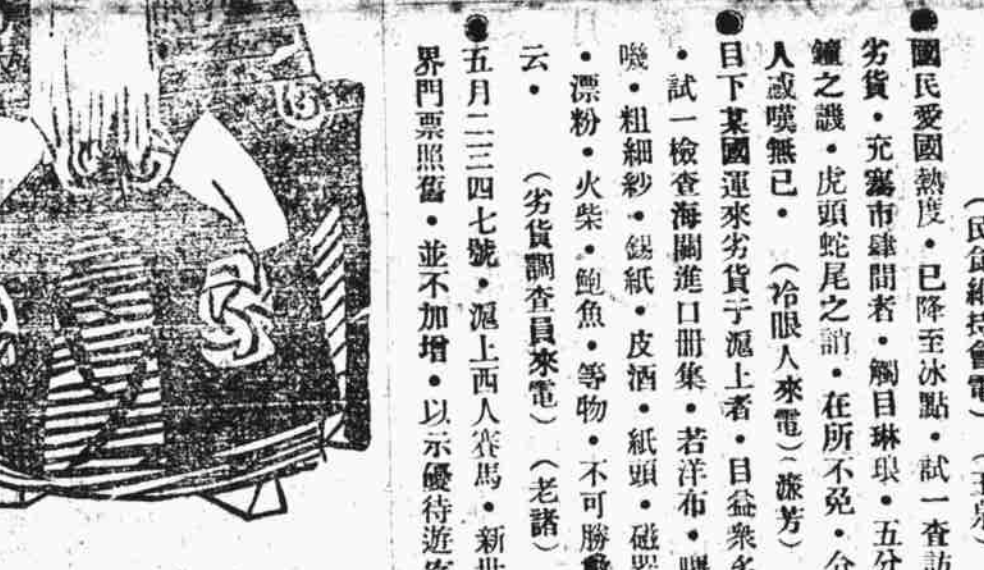 維持會電）（玉泉）
●國民愛國熱度・已降至冰點・試一查訪
劣貨・充塞市肆間者・觸目琳琅・五分
鐘之譏・虎頭蛇尾之誚・在所不免・
人感嘆無已・（冷眼人來電）（漱芳）
●目下某國運來劣貨于滬上者・日益衆
・試一檢查海關進口册集・若洋布・
嘰・粗細紗・錫紙・皮酒・紙頭・磁器
・漂粉・火柴・鮑魚・等物・不可勝數
云・（劣貨調查員來電）（老諸）
●五月二三四七號・滬上西人賽馬・新世
界門票照舊・並不加增・以示優待遊客